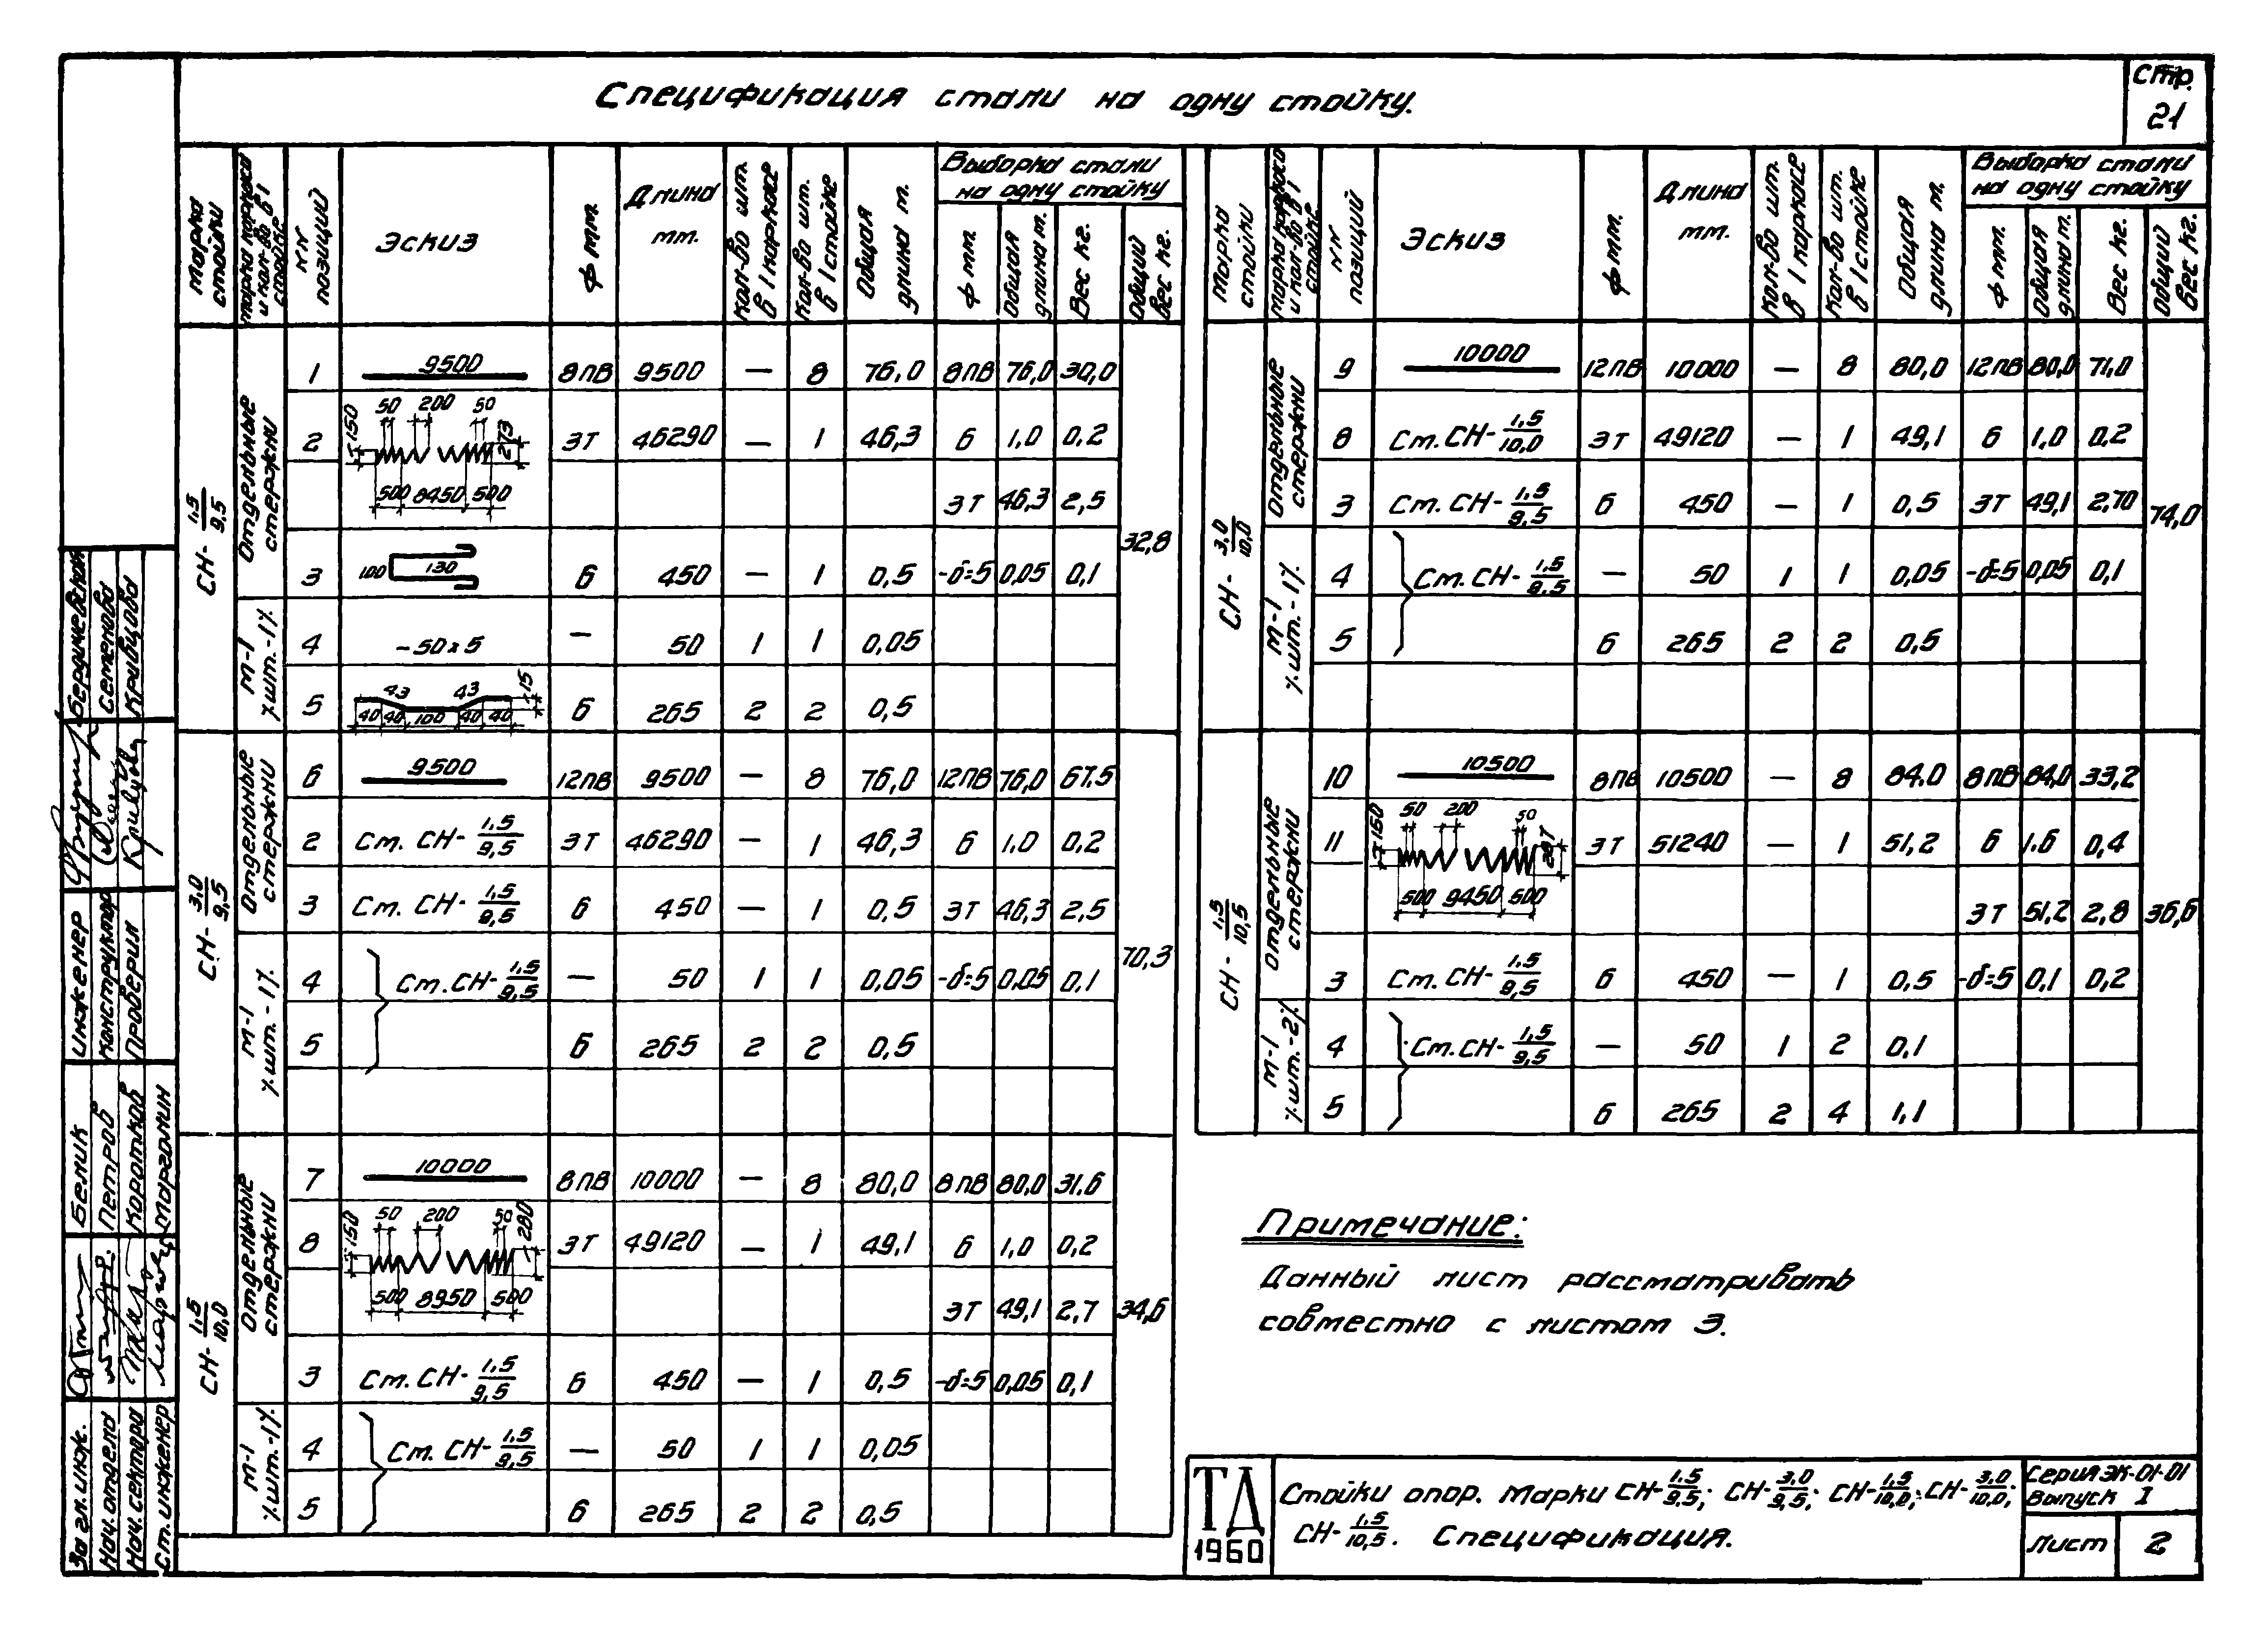 Спецификация стали на одну стойку.
Стр. 21
Марка стойки | Марка каркаса и кол-во в 1 стойке | NN позиций | Эскиз | ф мм. | Длина мм. | Кол-во шт. в 1 каркасе | Кол-во шт. в 1 стойке | Общая длина м. | Выборка стали на одну стойку: ф мм. | Общая длина м. | Вес кг. | Общий вес кг.
СН-1,5/9,5 | 32,8
Отдельные стержни
1 | 9500 | 8ПВ | 9500 | — | 8 | 76,0 | 8ПВ | 76,0 | 30,0
2 | 150 50 200 50 273 500 8450 500 | 3Т | 46290 | — | 1 | 46,3 | 6 | 1,0 | 0,2
3Т | 46,3 | 2,5
3 | 100 130 | 6 | 450 | — | 1 | 0,5 | -δ=5 | 0,05 | 0,1
М-1 шт.-1
4 | -50x5 | — | 50 | 1 | 1 | 0,05
5 | 43 43 15 40 40 100 40 40 | 6 | 265 | 2 | 2 | 0,5
СН-3,0/9,5 | 70,3
Отдельные стержни
6 | 9500 | 12ПВ | 9500 | — | 8 | 76,0 | 12ПВ | 76,0 | 67,5
2 | См. СН-1,5/9,5 | 3Т | 46290 | — | 1 | 46,3 | 6 | 1,0 | 0,2
3 | См. СН-1,5/9,5 | 6 | 450 | — | 1 | 0,5 | 3Т | 46,3 | 2,5
М-1 шт.-1
4 | См. СН-1,5/9,5 | — | 50 | 1 | 1 | 0,05 | -δ=5 | 0,05 | 0,1
5 | 6 | 265 | 2 | 2 | 0,5
СН-1,5/10,0 | 34,6
Отдельные стержни
7 | 10000 | 8ПВ | 10000 | — | 8 | 80,0 | 8ПВ | 80,0 | 31,6
8 | 150 50 200 50 280 500 8950 500 | 3Т | 49120 | — | 1 | 49,1 | 6 | 1,0 | 0,2
3Т | 49,1 | 2,7
3 | См. СН-1,5/9,5 | 6 | 450 | — | 1 | 0,5 | -δ=5 | 0,05 | 0,1
М-1 шт.-1
4 | См. СН-1,5/9,5 | — | 50 | 1 | 1 | 0,05
5 | 6 | 265 | 2 | 2 | 0,5
Марка стойки | Марка каркаса и кол-во в 1 стойке | NN позиций | Эскиз | ф мм. | Длина мм. | Кол-во шт. в 1 каркасе | Кол-во шт. в 1 стойке | Общая длина м. | Выборка стали на одну стойку: ф мм. | Общая длина м. | Вес кг. | Общий вес кг.
СН-3,0/10,0 | 74,0
Отдельные стержни
9 | 10000 | 12ПВ | 10000 | — | 8 | 80,0 | 12ПВ | 80,0 | 71,0
8 | См. СН-1,5/10,0 | 3Т | 49120 | — | 1 | 49,1 | 6 | 1,0 | 0,2
3 | См. СН-1,5/9,5 | 6 | 450 | — | 1 | 0,5 | 3Т | 49,1 | 2,70
М-1 шт.-1
4 | См. СН-1,5/9,5 | — | 50 | 1 | 1 | 0,05 | -δ=5 | 0,05 | 0,1
5 | 6 | 265 | 2 | 2 | 0,5
СН-1,5/10,5 | 36,6
Отдельные стержни
10 | 10500 | 8ПВ | 10500 | — | 8 | 84,0 | 8ПВ | 84,0 | 33,2
11 | 150 50 200 50 287 500 9450 500 | 3Т | 51240 | — | 1 | 51,2 | 6 | 1,6 | 0,4
3Т | 51,2 | 2,8
3 | См. СН-1,5/9,5 | 6 | 450 | — | 1 | 0,5 | -δ=5 | 0,1 | 0,2
М-1 шт.-2
4 | См. СН-1,5/9,5 | — | 50 | 1 | 2 | 0,1
5 | 6 | 265 | 2 | 4 | 1,1
Примечание:
Данный лист рассматривать
совместно с листом 3.
ТА 1960
Стойки опор. Марки СН-1,5/9,5; СН-3,0/9,5; СН-1,5/10,0; СН-3,0/10,0;
СН-1,5/10,5. Спецификация.
Серия ЭК-01-01
Выпуск I
Лист 2
Инженер Бердичевский
Конструктор Семенова
Проверил Кривцова
За гл. инж. Бемик
Нач. отдела Петров
Нач. сектора Коротков
Ст. инженер Марголин